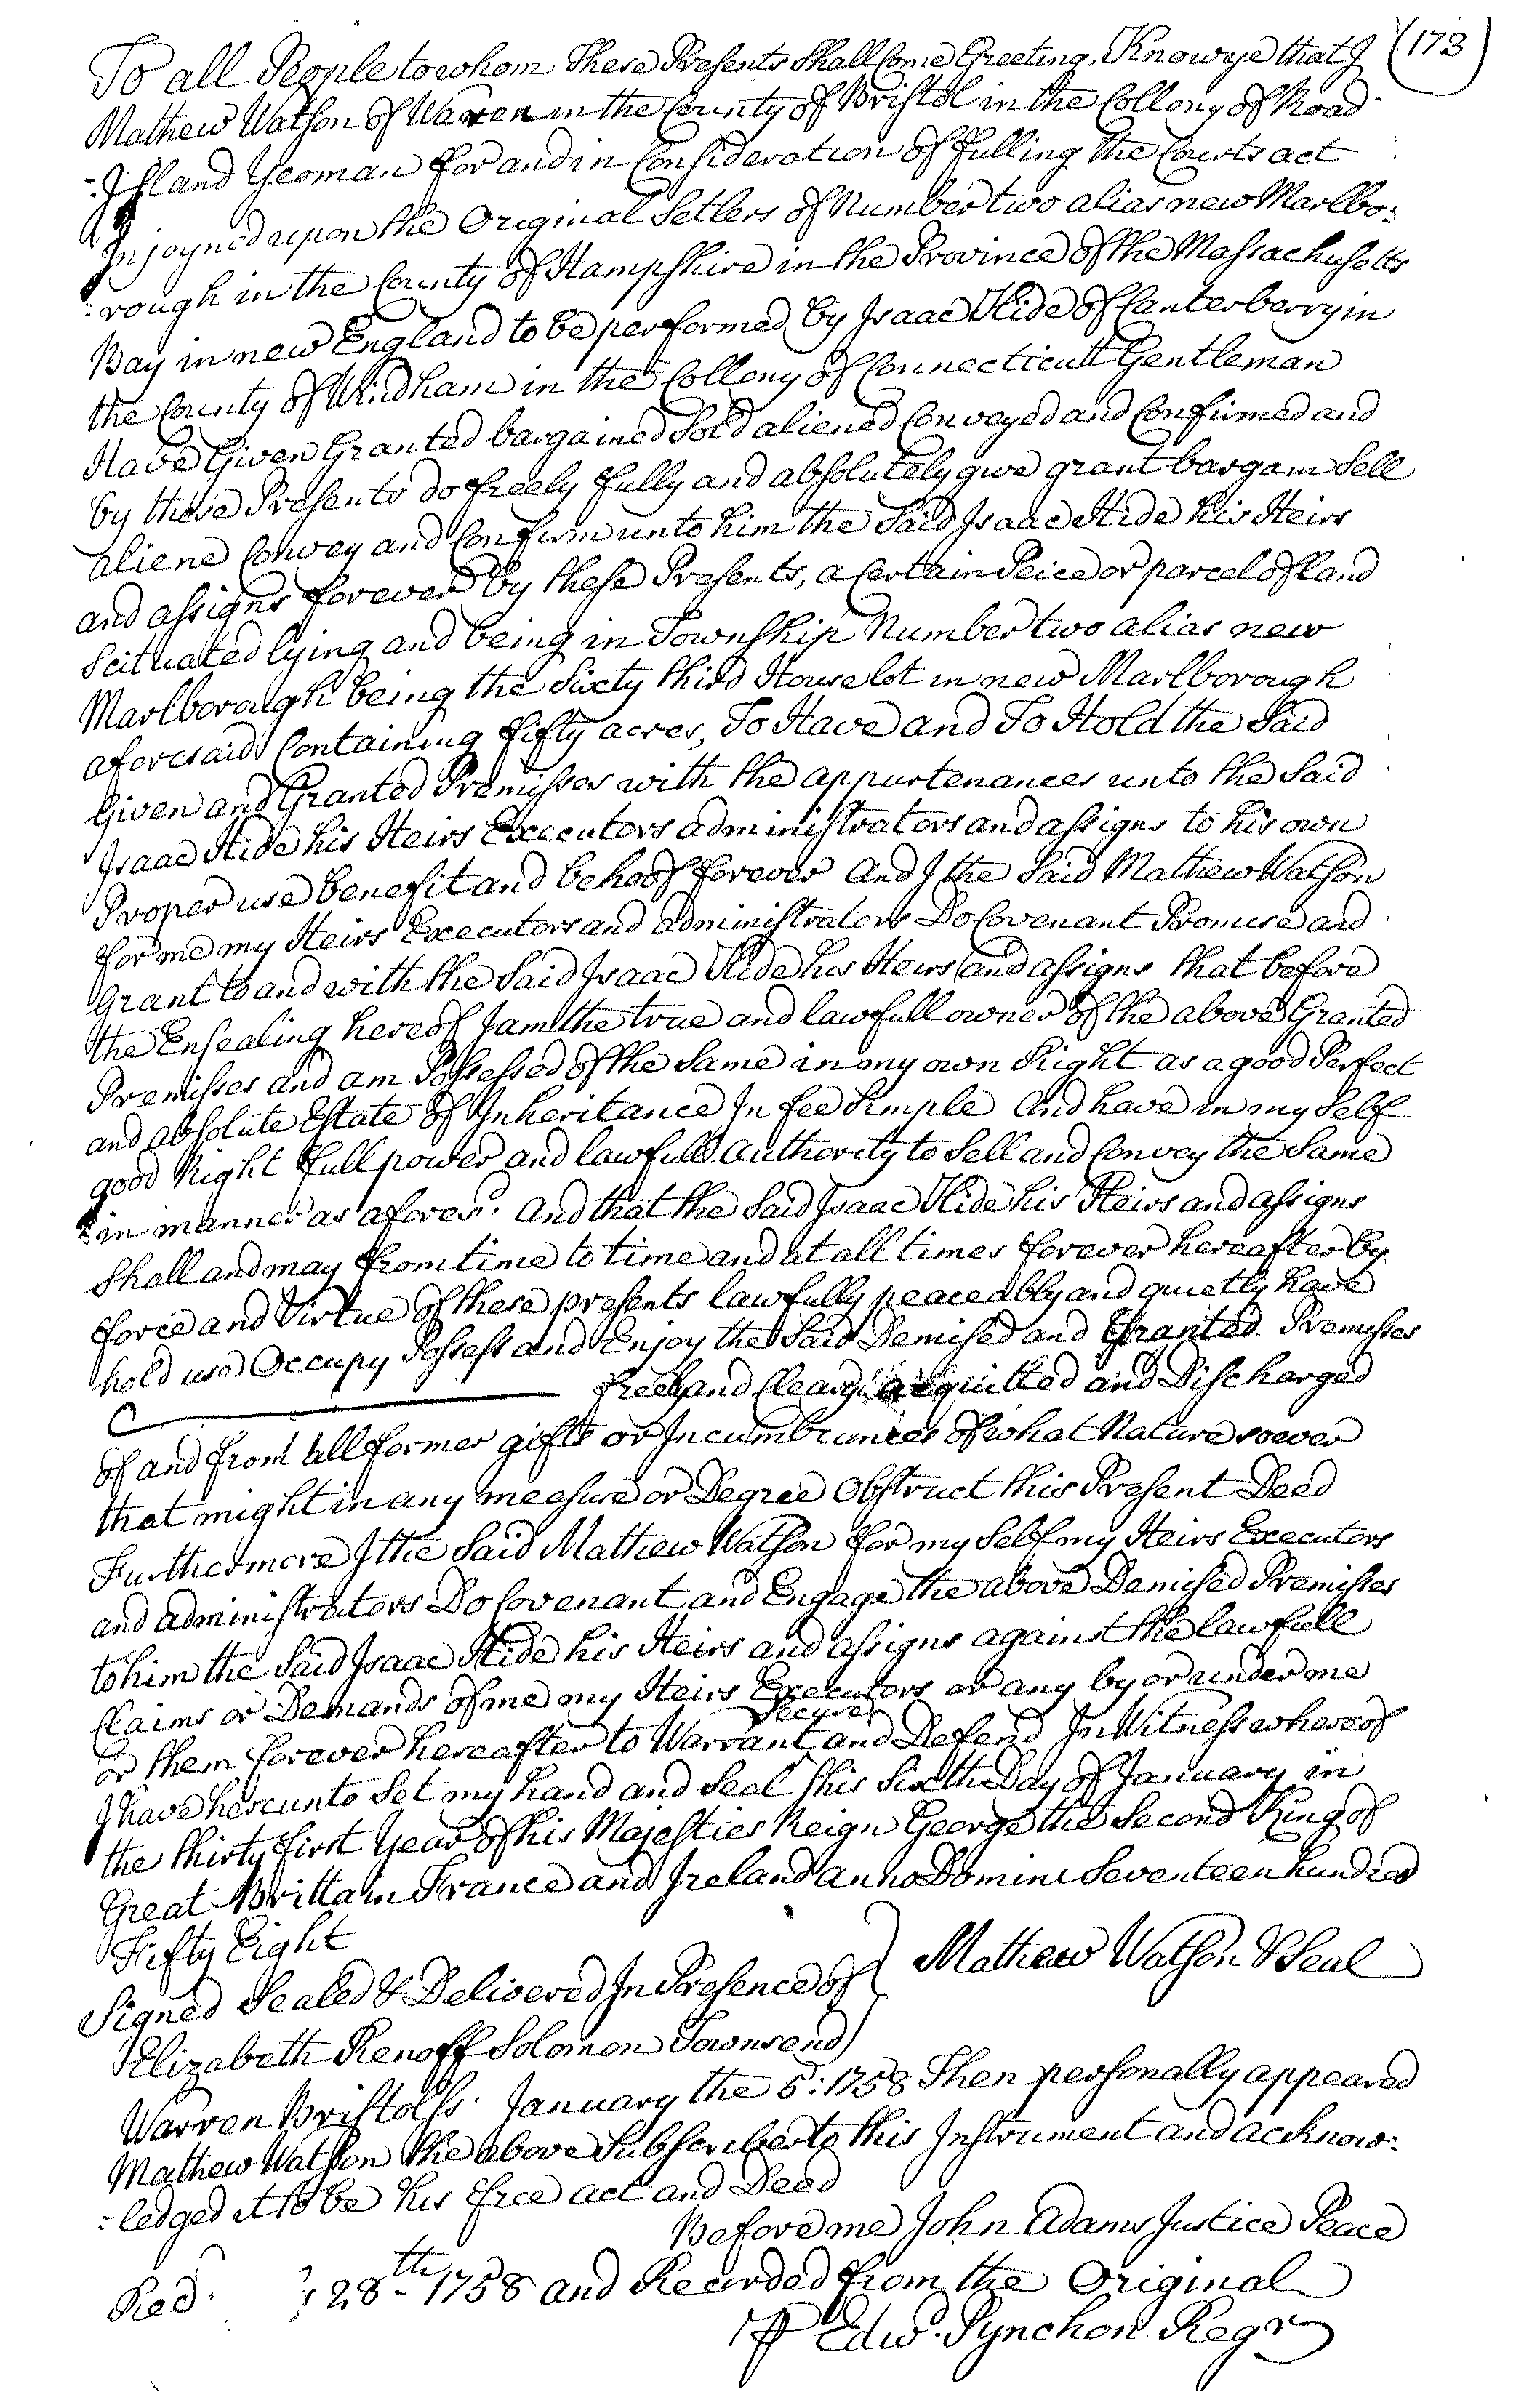 (173)
To all People to whom These Presents Shall Come Greeting, Know ye that I
Mathew Watson of Warren in the County of Bristol in the Collony of Road
-Island Yeoman for and in Consideration of fulling the Courts act
Injoyned upon the Original Setlers of Number two alias new Marlbo-
-rough in the County of Hampshire in the Province of the Massachusetts
Bay in new England to be performed by Isaac Hide of Canterberry in
the County of Windham in the Collony of Connecticutt Gentleman
Have Given Granted bargained Sold aliened Conveyed and Confirmed and
by these Presents do freely fully and absolutely give grant bargain Sell
aliene Convey and Confirm unto him the Said Isaac Hide his Heirs
and assigns forever by these Presents, a Certain Peice or parcel of land
Scituated lying and being in Township Number two alias new
Marlborough being the Sixty third House lot in new Marlborough
aforesaid Containing fifty acres, To Have and To Hold the Said
Given and Granted Premisses with the appurtenances unto the Said
Isaac Hide his Heirs Executors administrators and assigns to his own
Proper use benefit and behoof forever And I the Said Mathew Watson
for me my Heirs Executors and administrators Do Covenant Promise and
Grant to and with the Said Isaac Hide his Heirs and assigns that before
the Ensealing hereof I am the true and lawfull owner of the above Granted
Premisses and am Possessed of the Same in my own Right as a good Perfect
and absolute Estate of Inheritance In fee Simple And have in my Self
good Right full power and lawfull Authority to Sell and Convey the Same
in manner as aforesd. And that the Said Isaac Hide his Heirs and assigns
Shall and may from time to time and at all times forever hereafter by
force and Virtue of these presents lawfully peaceably and quietly have
hold use Occupy Possess and Enjoy the Said Demised and Granted Premisses
freely and Clearly acquitted and Discharged
of and from all former gifts or Incumbrances of what Nature soever
that might in any measure or Degree Obstruct this Present Deed
Furthermore I the Said Mathew Watson for my Self my Heirs Executors
and administrators Do Covenant and Engage the above Demised Premisses
to him the Said Isaac Hide his Heirs and assigns against the lawfull
Claims or Demands of me my Heirs Executors or any by or under me
or them forever hereafter to Warrant Secure and Defend In Witness whereof
I have hereunto Set my hand and Seal this Sixth Day of January in
the thirty first Year of his Majesties Reign George the Second King of
Great Brittain France and Ireland anno Domini Seventeen hundred
Fifty Eight
Signed Sealed & Delivered In Presence of } Mathew Watson & Seal
Elizabeth Renoff Solomon Townsend
Warren Bristol Ss. January the 5: 1758 Then personally appeared
Mathew Watson the above Subscriber to this Instrument and acknow-
-ledged it to be his free act and Deed
Before me John Adams Justice Peace
Recd. 28th 1758 and Recorded from the Original
P Edwd. Pynchon Regr